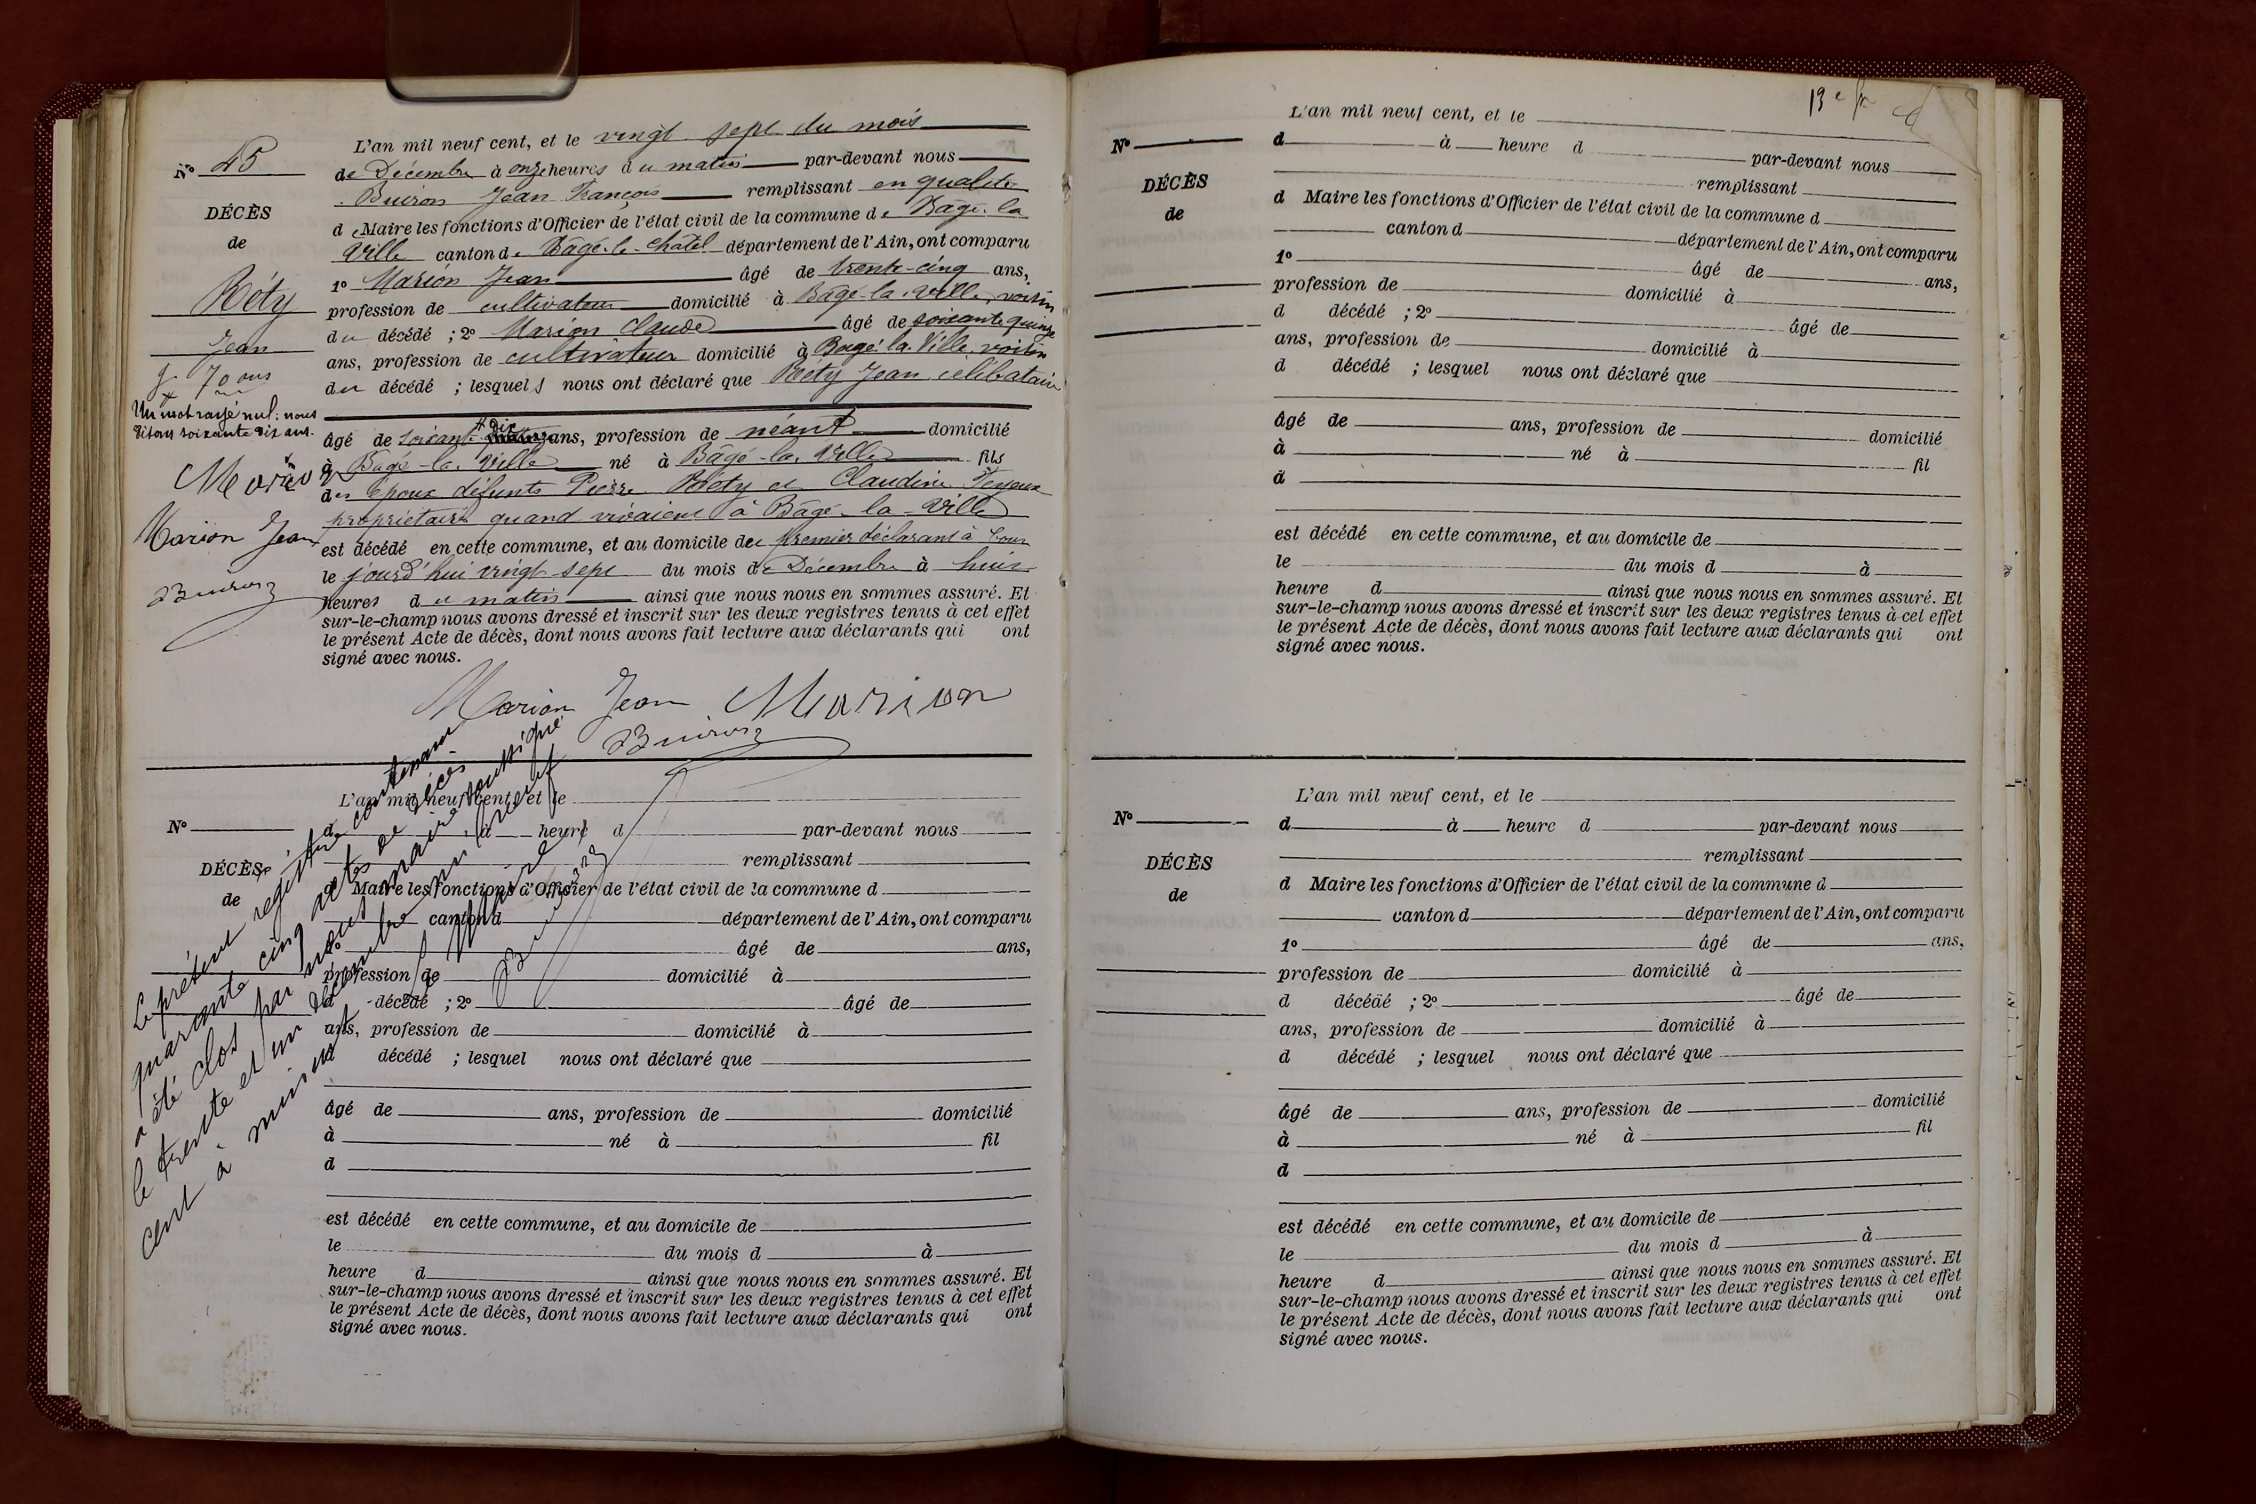 N° 45
DÉCÈS
de
Réty
Jean
70 ans
Un mot rayé nul : nous
disons soixante dix ans.
Marion
Marion Jean
Buiron
L'an mil neuf cent, et le vingt sept du mois
de Décembre à onze heures du matin par-devant nous
Buiron Jean François remplissant en qualité
de Maire les fonctions d'Officier de l'état civil de la commune de Bâgé-la
Ville canton de Bâgé-le-Châtel département de l'Ain, ont comparu
1° Marion Jean âgé de trente-cinq ans,
profession de cultivateur domicilié à Bâgé-la-Ville, voisin
du décédé ; 2° Marion Claude âgé de soixante quinze
ans, profession de cultivateur domicilié à Bagé la Ville, voisin
du décédé ; lesquels nous ont déclaré que Réty Jean célibataire
âgé de soixante dix ans, profession de néant domicilié
à Bâgé-la-Ville né à Bâgé-la-Ville fils
des époux défunts Pierre Réty et Claudine
propriétaires quand vivaient à Bâgé-la-Ville
est décédé en cette commune, et au domicile du premier déclarant à
le jourd'hui vingt-sept du mois de Décembre à huit
heures du matin ainsi que nous nous en sommes assuré. Et
sur-le-champ nous avons dressé et inscrit sur les deux registres tenus à cet effet
le présent Acte de décès, dont nous avons fait lecture aux déclarants qui ont
signé avec nous.
Marion Jean Marion
Buiron
Le présent registre contenant
quarante cinq actes de décès
a été clos par nous maire soussigné
le trente et un décembre mil neuf
cent à minuit
Le Maire
Buiron
N°
DÉCÈS
de
L'an mil neuf cent, et le
d à heure d par-devant nous
remplissant
d Maire les fonctions d'Officier de l'état civil de la commune d
canton d département de l'Ain, ont comparu
1° âgé de ans,
profession de domicilié à
d décédé ; 2° âgé de
ans, profession de domicilié à
d décédé ; lesquel nous ont déclaré que
âgé de ans, profession de domicilié
à né à fil
d
est décédé en cette commune, et au domicile de
le du mois d à
heure d ainsi que nous nous en sommes assuré. Et
sur-le-champ nous avons dressé et inscrit sur les deux registres tenus à cet effet
le présent Acte de décès, dont nous avons fait lecture aux déclarants qui ont
signé avec nous.
N°
DÉCÈS
de
L'an mil neuf cent, et le
d à heure d par-devant nous
remplissant
d Maire les fonctions d'Officier de l'état civil de la commune d
canton d département de l'Ain, ont comparu
1° âgé de ans,
profession de domicilié à
d décédé ; 2° âgé de
ans, profession de domicilié à
d décédé ; lesquel nous ont déclaré que
âgé de ans, profession de domicilié
à né à fil
d
est décédé en cette commune, et au domicile de
le du mois d à
heure d ainsi que nous nous en sommes assuré. Et
sur-le-champ nous avons dressé et inscrit sur les deux registres tenus à cet effet
le présent Acte de décès, dont nous avons fait lecture aux déclarants qui ont
signé avec nous.
N°
DÉCÈS
de
L'an mil neuf cent, et le
d à heure d par-devant nous
remplissant
d Maire les fonctions d'Officier de l'état civil de la commune d
canton d département de l'Ain, ont comparu
1° âgé de ans,
profession de domicilié à
d décédé ; 2° âgé de
ans, profession de domicilié à
d décédé ; lesquel nous ont déclaré que
âgé de ans, profession de domicilié
à né à fil
d
est décédé en cette commune, et au domicile de
le du mois d à
heure d ainsi que nous nous en sommes assuré. Et
sur-le-champ nous avons dressé et inscrit sur les deux registres tenus à cet effet
le présent Acte de décès, dont nous avons fait lecture aux déclarants qui ont
signé avec nous.